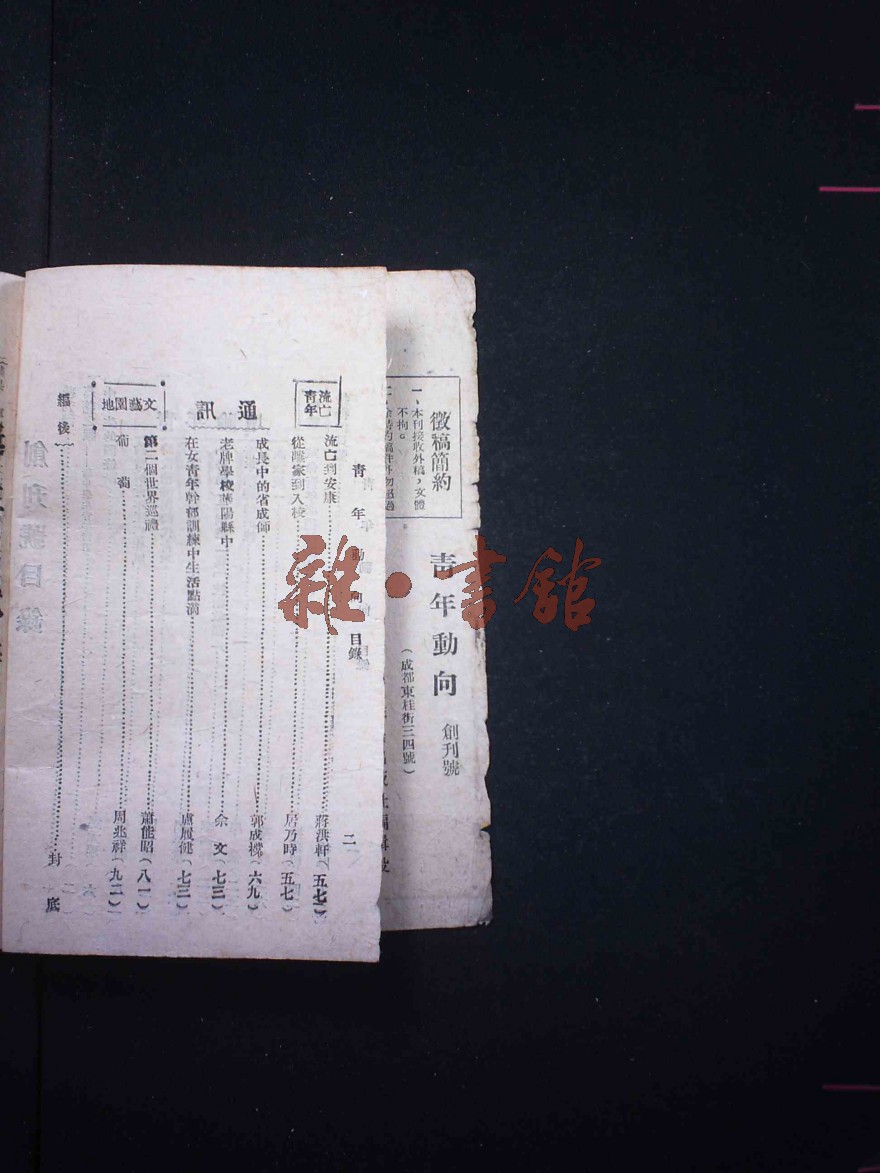 徵稿簡約
一、本刊接收外稿，文體
不拘。
青年動向 創刊號
（成都東桂街三四號）
青年動向 目錄 二
流亡青年
流亡到安康 蔣洪軒（五七）
從離家到入校 居乃時（五七）
通訊
成長中的省成師 郭成樸（六九）
老牌學校華陽縣中 余文（七三）
在女青年幹部訓練中生活點滴 盧履健（七三）
文藝園地
第二個世界巡禮 蕭能昭（八一）
葡萄 周兆祥（九二）
編後 封底
創刊號目錄
雜·書館